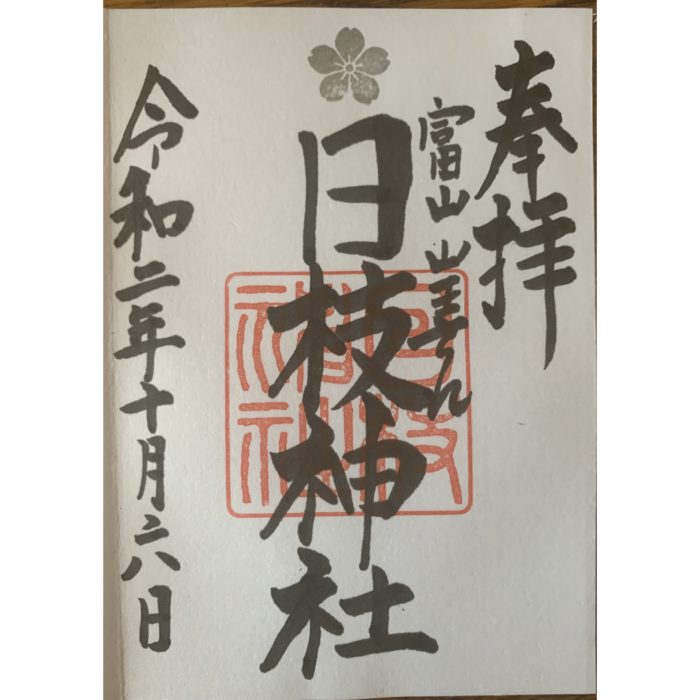 奉拝
富山 山王さん
日枝神社
令和二年十月二八日